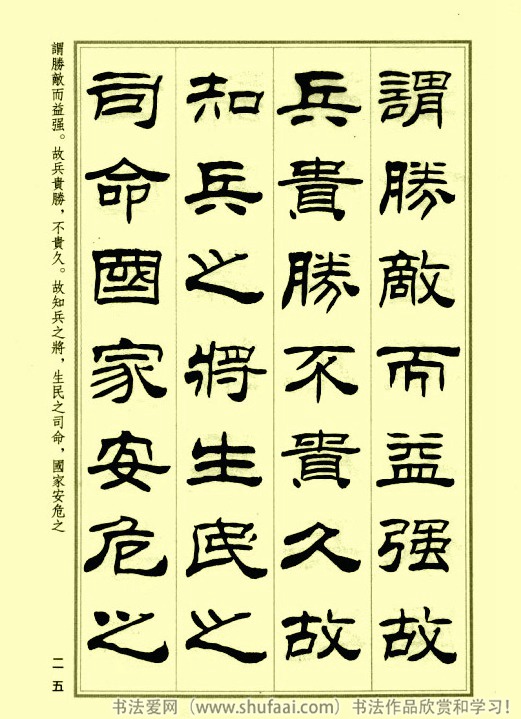 謂勝敵而益强故
兵貴勝不貴久故
知兵之將生民之
司命國家安危之
謂勝敵而益强。故兵貴勝，不貴久。故知兵之將，生民之司命，國家安危之
二五
书法爱网（www.shufaai.com）书法作品欣赏和学习！